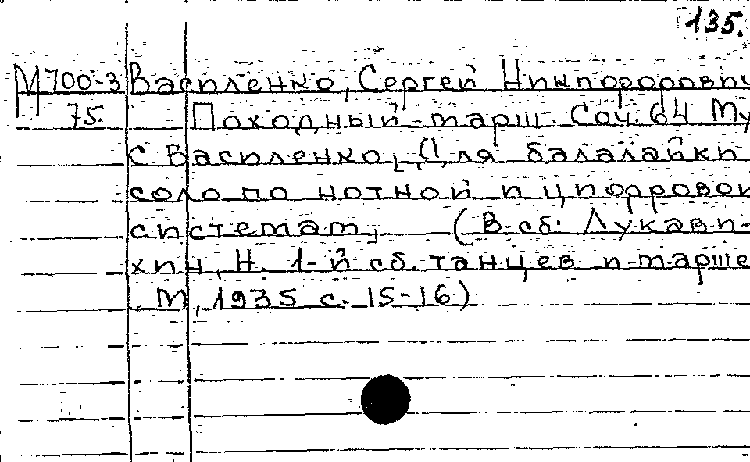 135.
М700-3 Василенко, Сергей Никифорови
75. Походный марш. Соч. 64 Му
С Василенко, Для балалайки
соло по нотной и цифровой
системам, (В сб: Лукави-
хин, Н. 1-й сб. танцев и марше
М, 1935 с. 15-16)